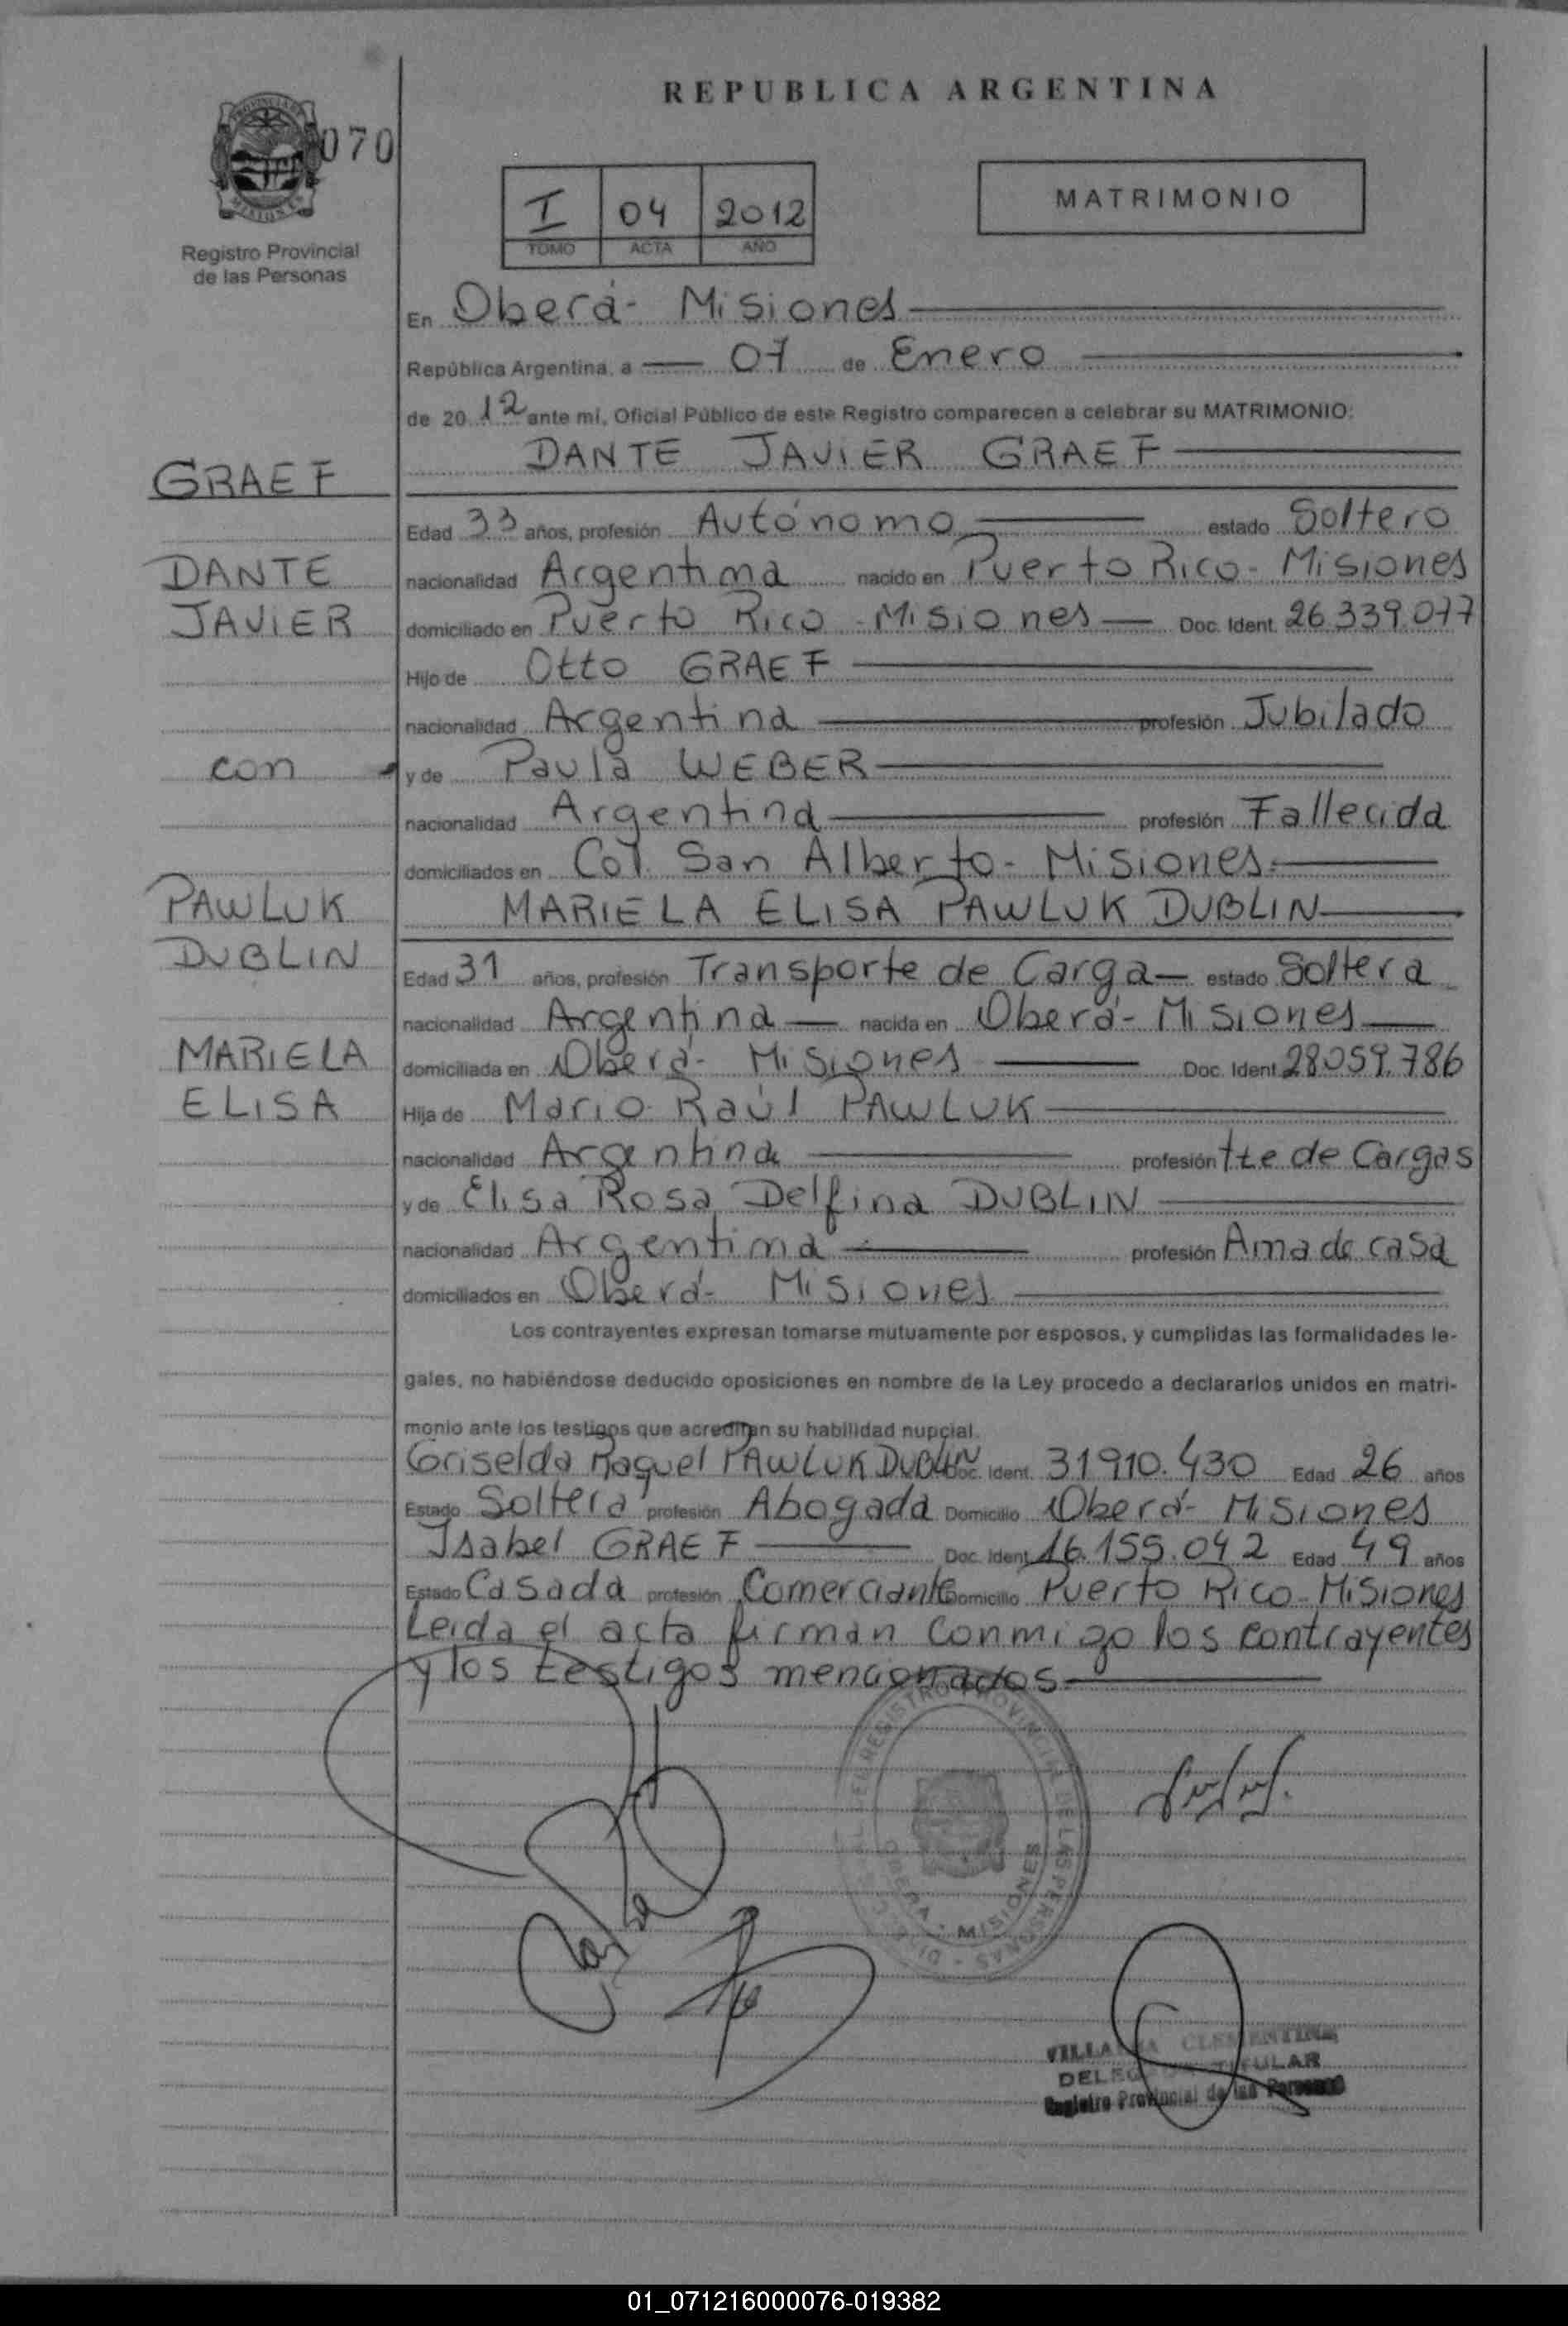 REPUBLICA ARGENTINA
070
Registro Provincial
de las Personas
I 04 2012
TOMO ACTA AÑO
MATRIMONIO
En Oberá - Misiones
República Argentina, a 07 de Enero
de 20 12 ante mi, Oficial Público de este Registro comparecen a celebrar su MATRIMONIO:
DANTE JAVIER GRAEF
GRAEF
Edad 33 años, profesión Autónomo estado Soltero
DANTE
nacionalidad Argentina nacido en Puerto Rico - Misiones
JAVIER
domiciliado en Puerto Rico - Misiones Doc. Ident. 26.339.077
Hijo de Otto GRAEF
nacionalidad Argentina profesión Jubilado
con
y de Paula WEBER
nacionalidad Argentina profesión Fallecida
domiciliados en Col. San Alberto - Misiones
PAWLUK
MARIELA ELISA PAWLUK DUBLIN
DUBLIN
Edad 31 años, profesión Transporte de Carga estado Soltera
nacionalidad Argentina nacida en Oberá - Misiones
MARIELA
domiciliada en Oberá - Misiones Doc. Ident. 28059.786
ELISA
Hija de Mario Raúl PAWLUK
nacionalidad Argentina profesión tte de Cargas
y de Elisa Rosa Delfina DUBLIN
nacionalidad Argentina profesión Ama de casa
domiciliados en Oberá - Misiones
Los contrayentes expresan tomarse mutuamente por esposos, y cumplidas las formalidades le-
gales, no habiéndose deducido oposiciones en nombre de la Ley procedo a declararlos unidos en matri-
monio ante los testigos que acreditan su habilidad nupcial.
Griselda Raquel PAWLUK DUBLIN Doc. Ident. 31910.430 Edad 26 años
Estado Soltera profesión Abogada Domicilio Oberá - Misiones
Isabel GRAEF Doc. Ident. 16.155.042 Edad 49 años
Estado Casada profesión Comerciante Domicilio Puerto Rico - Misiones
Leida el acta firman conmigo los contrayentes
y los testigos mencionados
REGISTRO PROVINCIAL DE LAS PERSONAS
OBERA - MISIONES
CLEMENTINA
TITULAR
Registro Provincial de las Personas
01_071216000076-019382